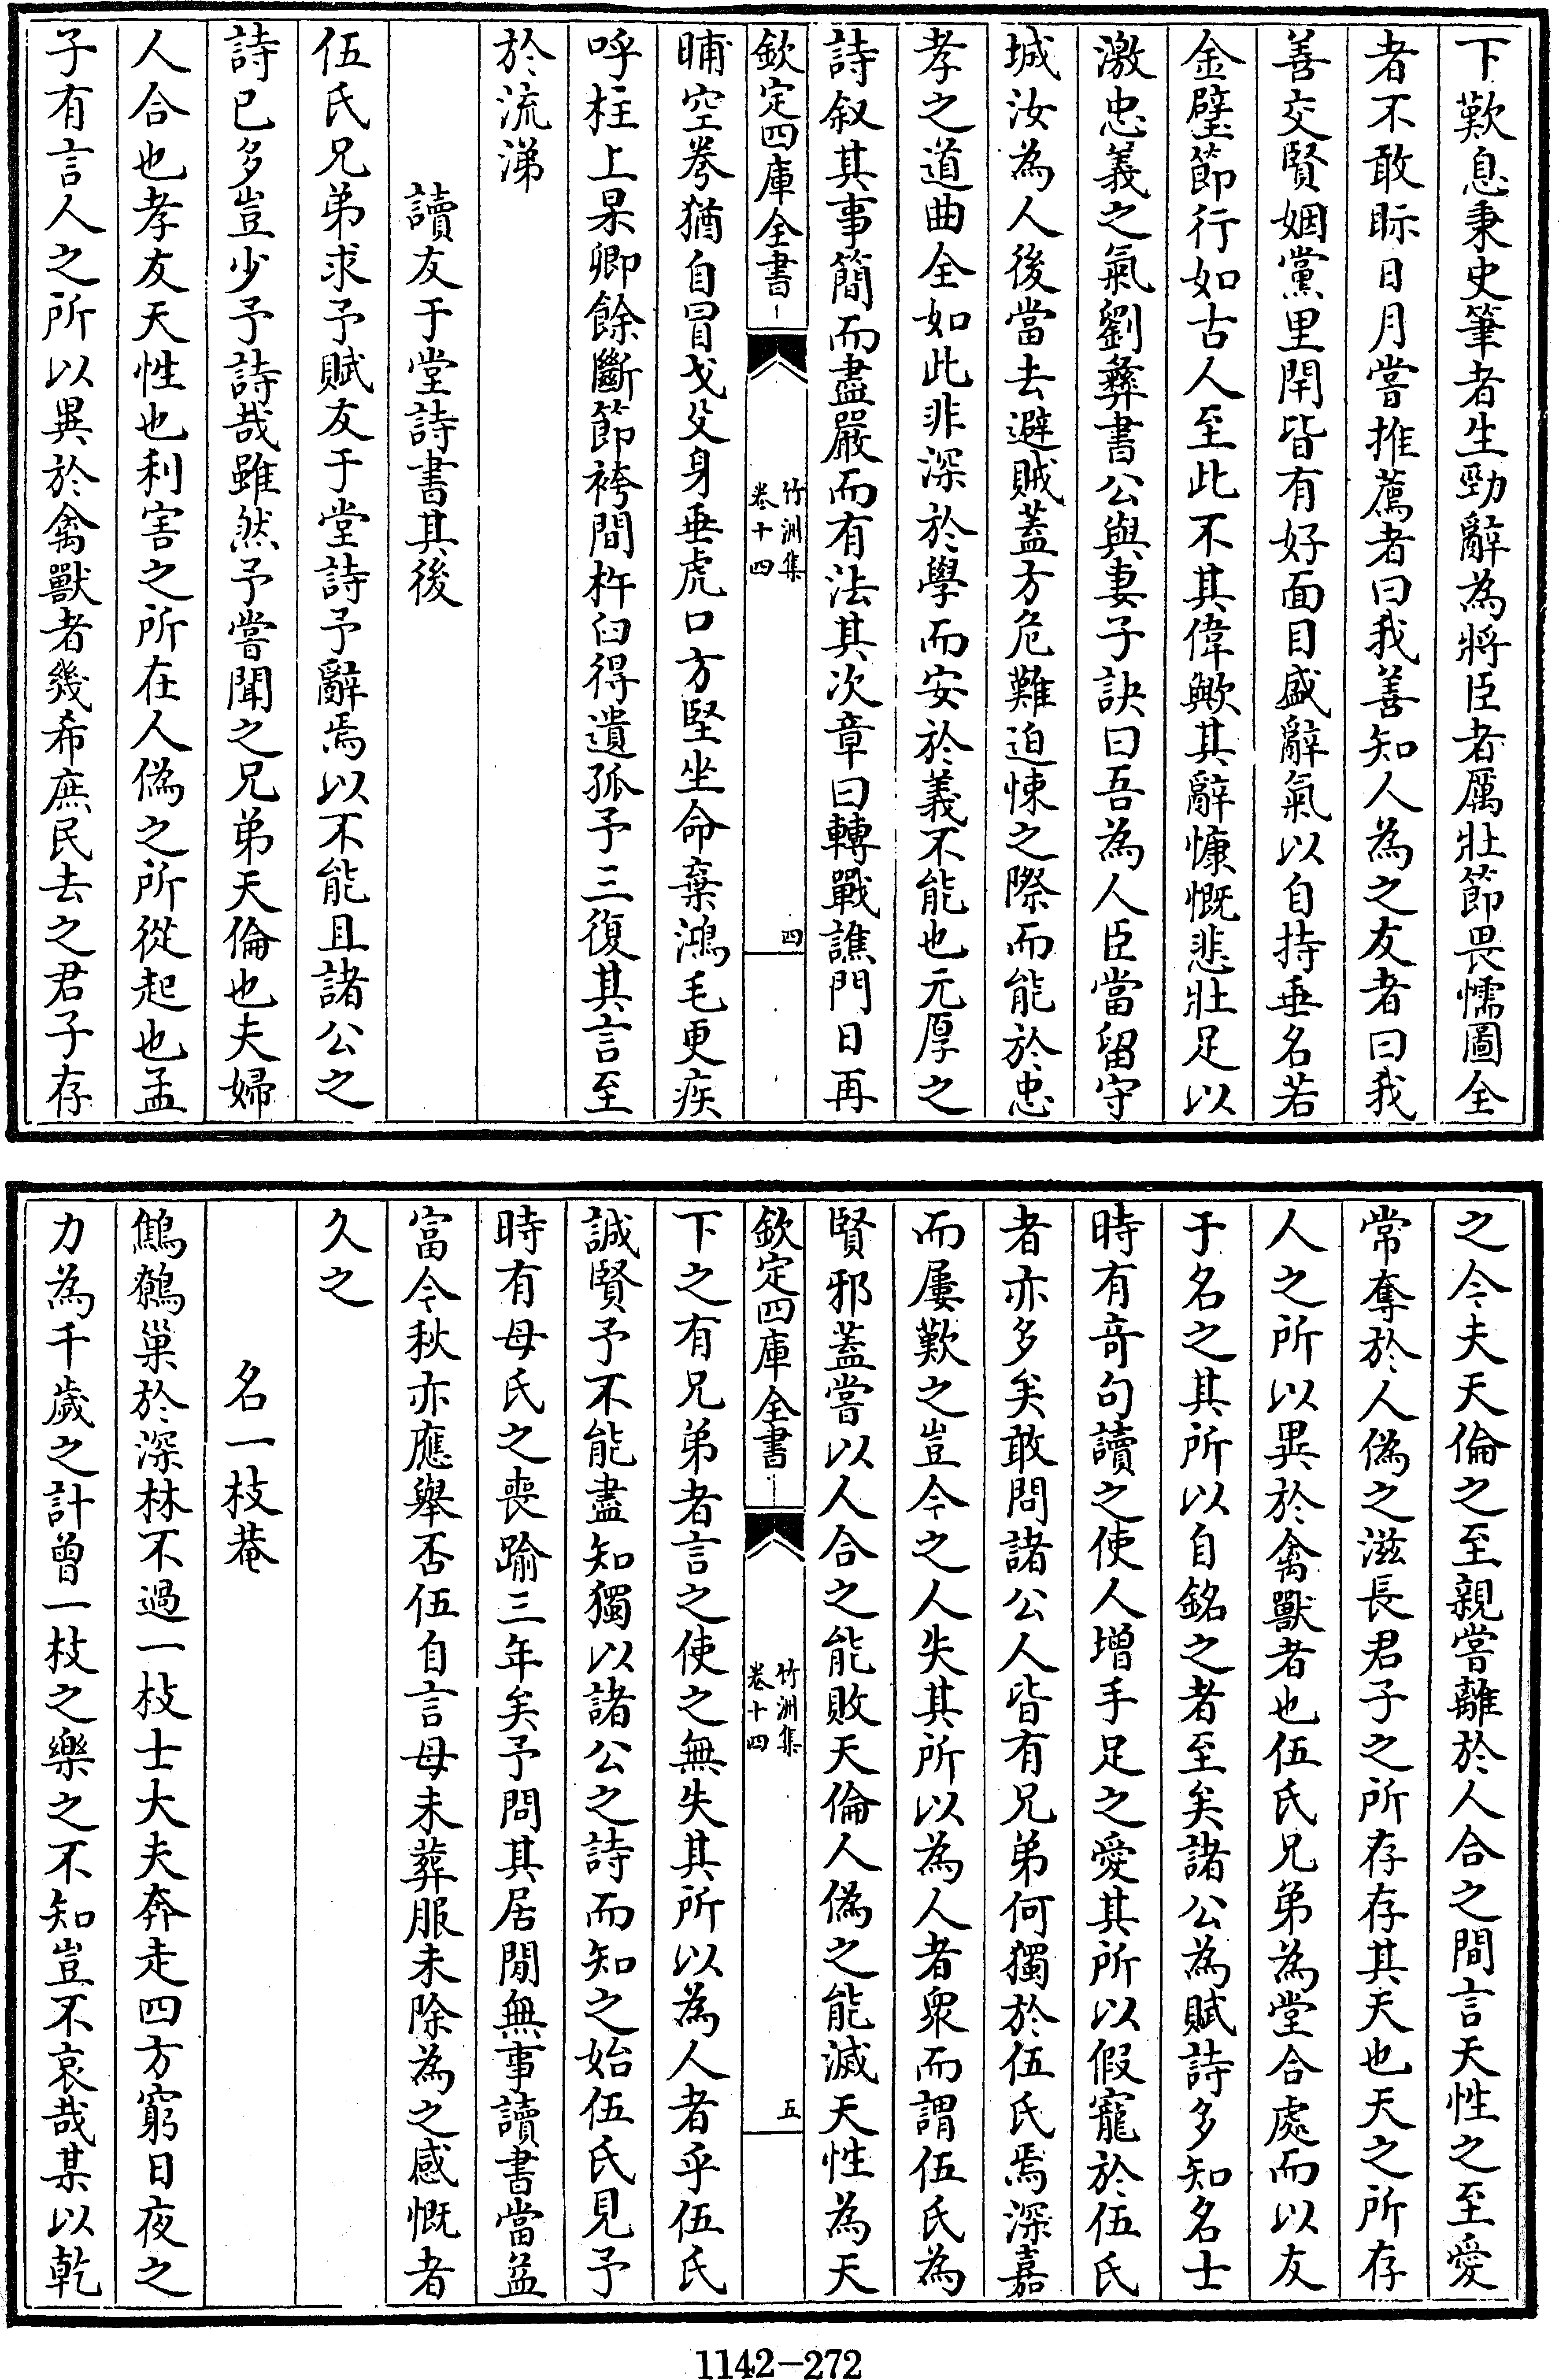 下歎息秉史筆者生勁辭為將臣者厲壯節畏懦圖全
者不敢眎日月嘗推薦者曰我善知人為之友者曰我
善交賢姻黨里閈皆有好面目盛辭氣以自持垂名若
金壁節行如古人至此不其偉歟其辭慷慨悲壯足以
激忠義之氣劉彝書公與妻子訣曰吾為人臣當留守
城汝為人後當去避賊蓋方危難迫悚之際而能於忠
孝之道曲全如此非深於學而安於義不能也元厚之
詩叙其事簡而盡嚴而有法其次章曰轉戰譙門日再
欽定四庫全書
竹洲集
卷十四
四
晡空弮猶自冒戈殳身垂虎口方堅坐命棄鴻毛更疾
呼柱上杲卿餘斷節袴間杵臼得遺孤予三復其言至
於流涕
讀友于堂詩書其後
伍氏兄弟求予賦友于堂詩予辭焉以不能且諸公之
詩已多豈少予詩哉雖然予嘗聞之兄弟天倫也夫婦
人合也孝友天性也利害之所在人偽之所從起也孟
子有言人之所以異於禽獸者幾希庶民去之君子存
之今夫天倫之至親嘗離於人合之間言天性之至愛
常奪於人偽之滋長君子之所存存其天也天之所存
人之所以異於禽獸者也伍氏兄弟為堂合處而以友
于名之其所以自銘之者至矣諸公為賦詩多知名士
時有奇句讀之使人增手足之愛其所以假寵於伍氏
者亦多矣敢問諸公人皆有兄弟何獨於伍氏焉深嘉
而屢歎之豈今之人失其所以為人者衆而謂伍氏為
賢邪蓋嘗以人合之能敗天倫人偽之能滅天性為天
欽定四庫全書
竹洲集
卷十四
五
下之有兄弟者言之使之無失其所以為人者乎伍氏
誠賢予不能盡知獨以諸公之詩而知之始伍氏見予
時有母氏之喪踰三年矣予問其居閒無事讀書當益
富今秋亦應舉否伍自言母未葬服未除為之感慨者
久之
名一枝菴
鷦鷯巢於深林不過一枝士大夫奔走四方窮日夜之
力為千歲之計曾一枝之樂之不知豈不哀哉某以乾
1142-272